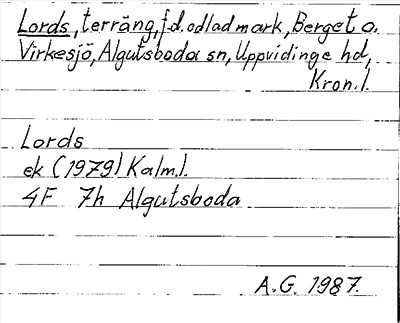 Lords, terräng, f.d. odlad mark, Berget o.
Virkesjö, Algutsboda sn, Uppvidinge hd,
Kron.l.
Lords
ek (1979) Kalm.l.
4F 7h Algutsboda
A.G. 1987.